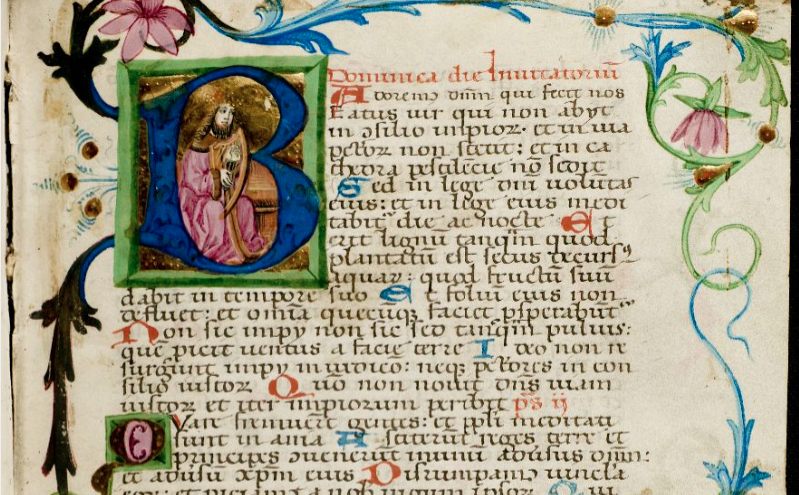 Dominica die Invitatoriū
Adorem9 dn̄m qui fecit nos
Beatus vir qui non abijt
in ↄsilio impioꝝ. et in via
pcc̄oꝝ non stetit: et in ca
thedra pestilēcie nō sedit
Sed in lege dn̄i voluntas
eius: et in lege eius medi
tabit᷑ die ac nocte Et
erit lignū tanqͣm quod
plantatū est secus decurs9
aquaꝝ: quod fructū suū
dabit in tempore suo Et foliū eius non
defluet: et om̄ia quecūqꝫ faciet ꝓsperabūt᷑
Non sic impij non sic sed tanqͣm puluis:
quē ꝓicit uentus a facie terre Ideo non re
surgunt impij in iudicio: neqꝫ pcc̄ores in con
silio iustoꝝ Qm̄ nouit dn̄s uiam
iustoꝝ et iter impioꝝ peribit ps̄ ij
Qvare fremuert̄ gentes: et ppl̄i meditati
sunt inania Astiterūt reges terre et
principes ↄuenerūt in unū aduersus dn̄m:
et aduersū xp̄m eius Disrumpam9 uincla
eoꝝ: et ꝓiciam9 a nob̄ iugum ipsoꝝ Qui